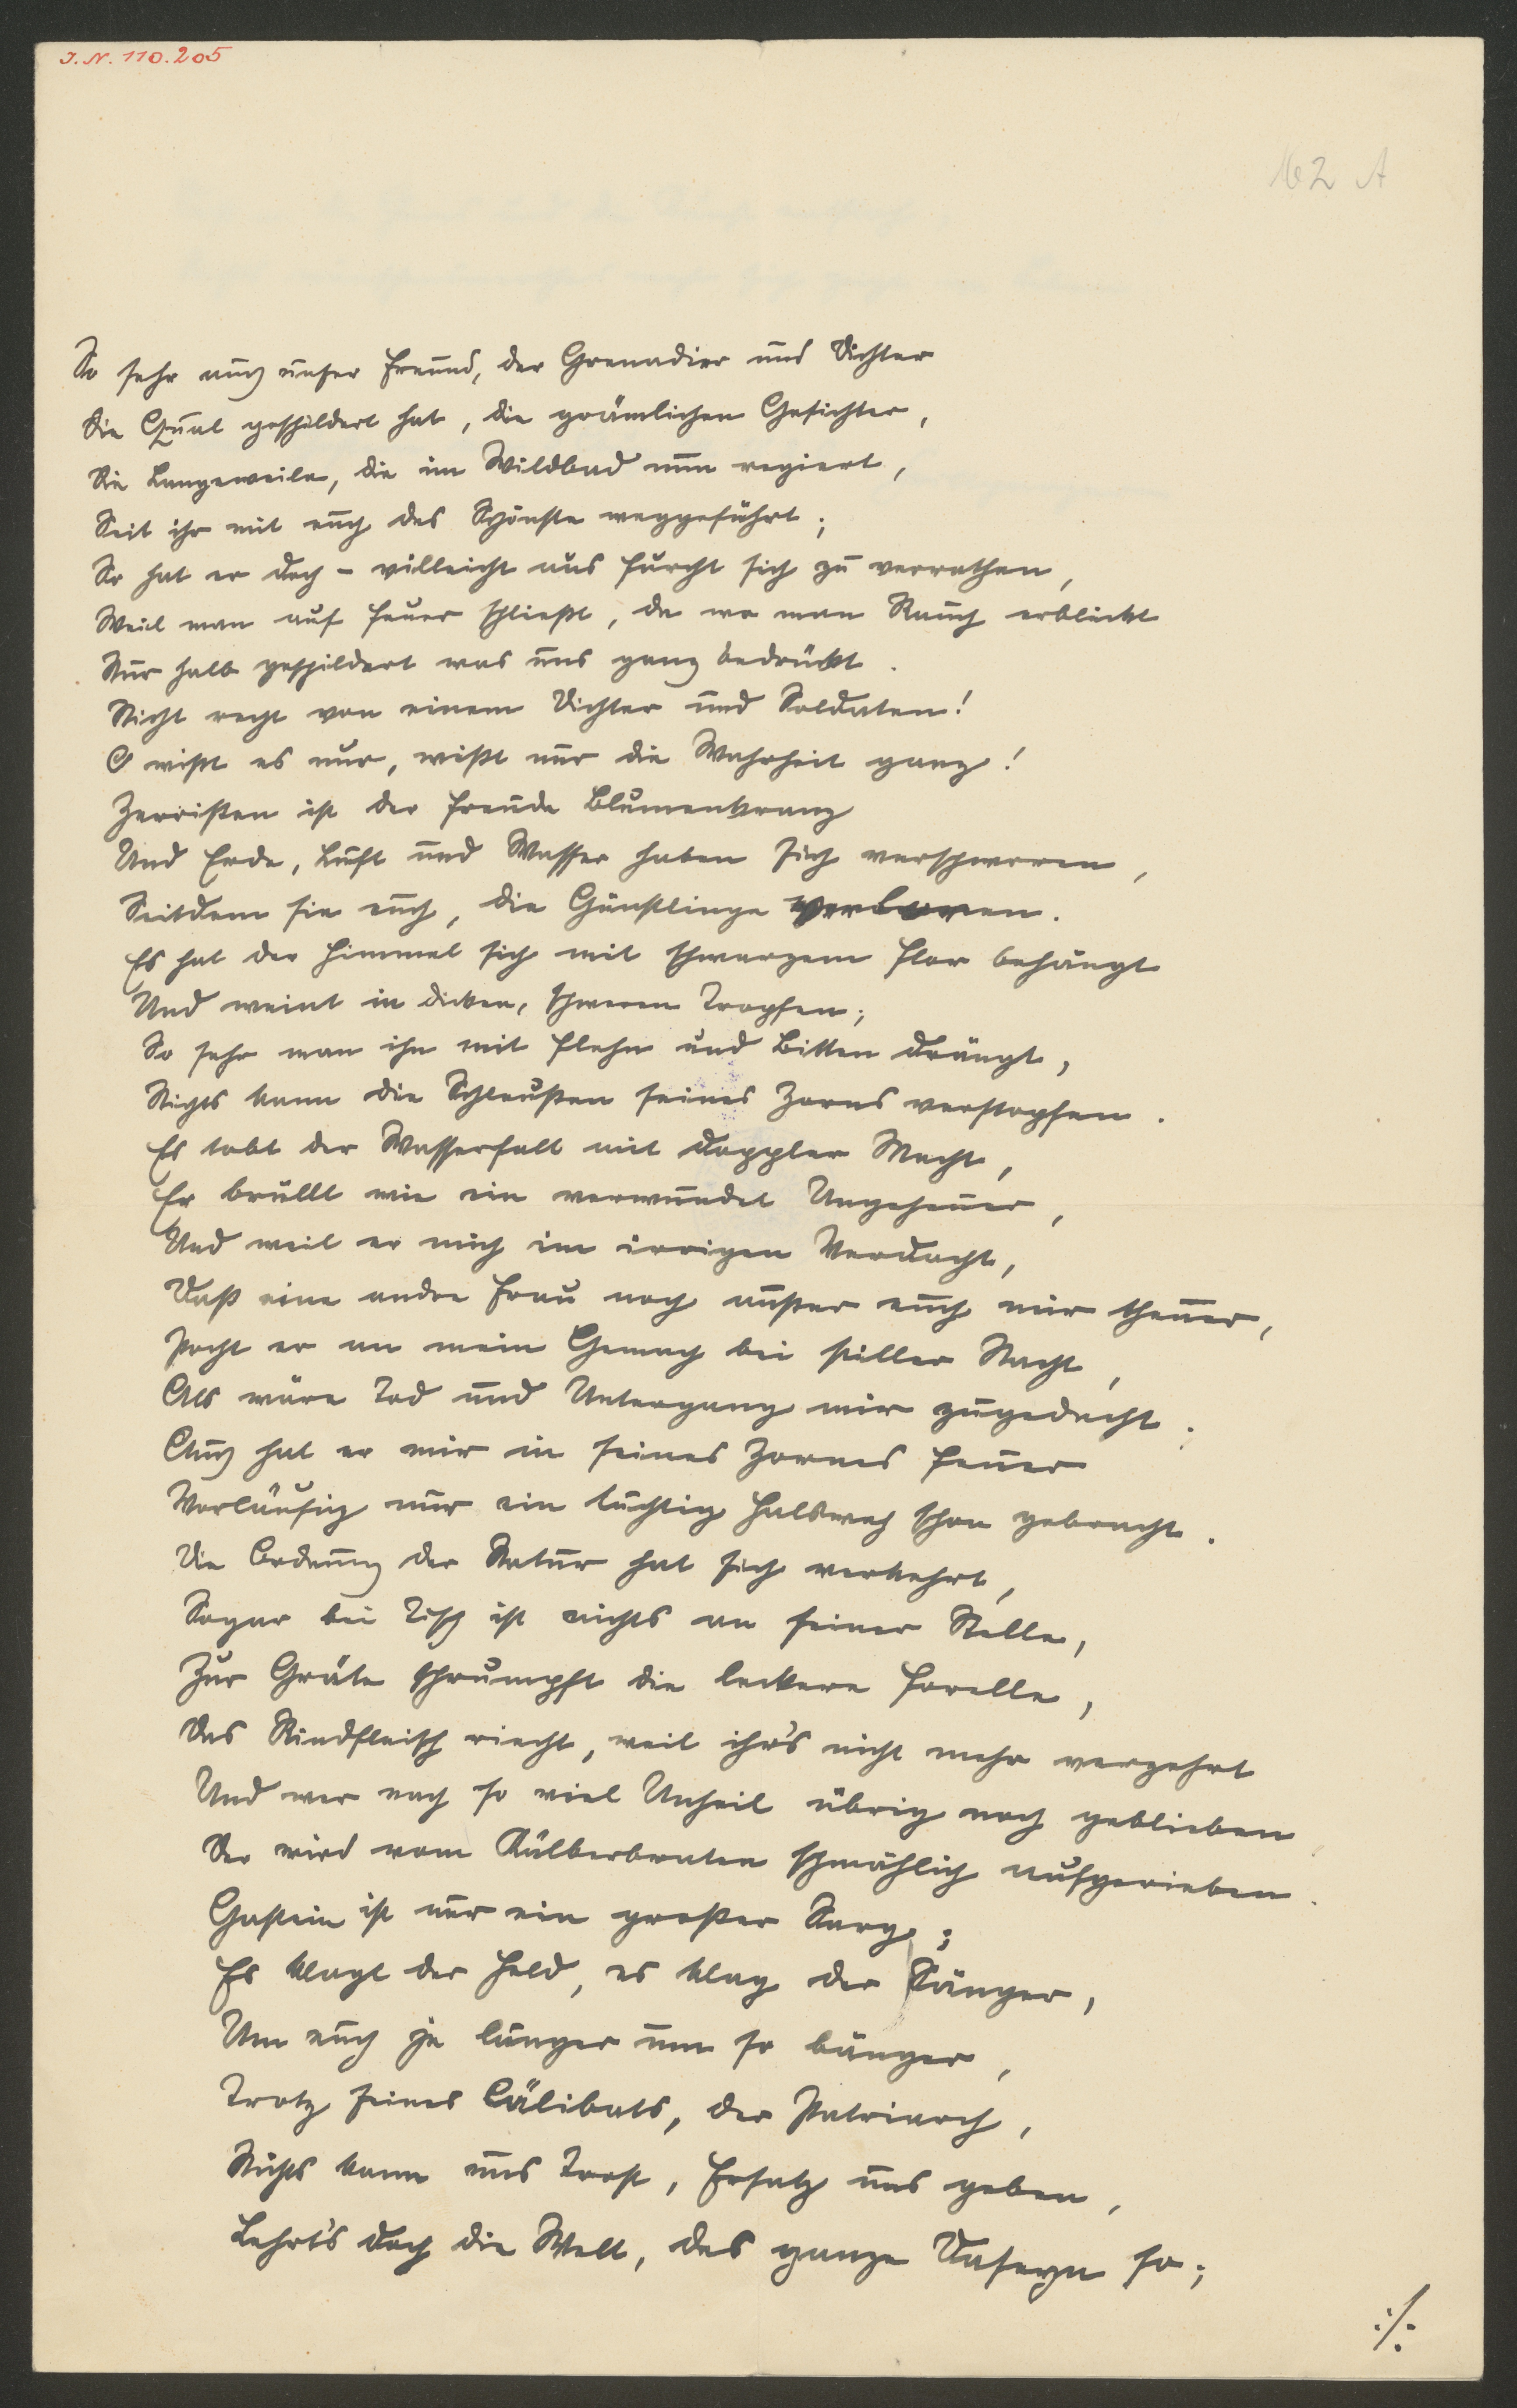 J. N. 110.205
162 A
So sehr auch unser Freund, der Grenadier und Dichter
Die Qual geschildert hat, die grämlichen Gesichter,
Die Langeweile, die im Wildbad nun regiert,
Seit ihr mit euch das Schönste weggeführt;
So hat er doch – villeicht aus Furcht sich zu verrathen,
Weil man auf Feuer schließt, da wo man Rauch erblickt
Nur halb geschildert was uns ganz bedrückt.
Nicht recht von einem Dichter und Soldaten!
O wißt es nur, wißt nur die Wahrheit ganz!
Zerrißen ist der Freude Blumenkranz
Und Erde, Luft und Wasser haben sich verschworen,
Seitdem sie euch, die Günstlinge verloren.
Es hat der Himmel sich mit schwarzem Flor behängt
Und weint in dicken, schweren Tropfen;
So sehr man ihn mit Flehn und Bitten drängt,
Nichts kann die Schleußen seines Zorns verstopfen.
Es tobt der Wasserfall mit doppler Macht,
Er brüllt wie ein verwundet Ungeheuer,
Und weil er mich im irrigen Verdacht,
Daß eine andre Frau noch außer euch mir theuer,
Pocht er an mein Gemach bei stiller Nacht,
Als wäre Tod und Untergang mir zugedacht.
Auch hat er mir in seines Zornes Feuer
Vorläufig nur ein tüchtig Halsweh schon gebracht.
Die Ordnung der Natur hat sich verkehrt,
Sogar bei Tisch ist nichts an seiner Stelle,
Zur Gräte schrumpft die leckere Forelle,
Das Rindfleisch riecht, weil ihr's nicht mehr verzehrt
Und wer nach so viel Unheil übrig noch geblieben
Der wird vom Kälberbraten schmählich aufgerieben.
Gastein ist nur ein großer Sarg;
Es klagt der Held, es klag der Sänger,
Um euch je länger um so bänger,
Trotz seines Cälibats, der Patriarch,
Nichts kann uns Trost, Ersatz uns geben,
Lehrt's doch die Welt, das ganze Daseyn so;
:/: